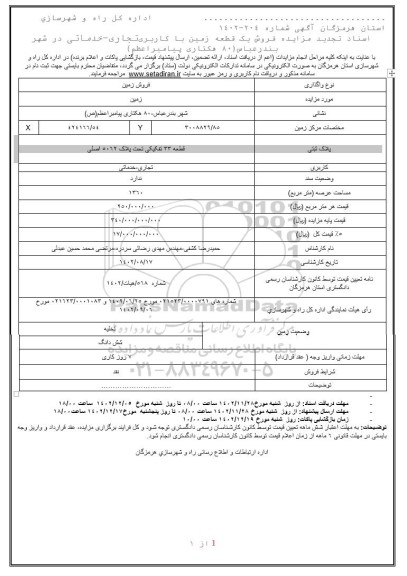 اداره کل راه و شهرسازی
استان هرمزگان آگهی شماره ۲۰۴-۱۴۰۲
اسناد تجدید مزایده فروش یک قطعه زمین با کاربری تجاری-خدماتی در شهر
بندرعباس (۸۰ هکتاری پیامبراعظم)
با عنایت به اینکه کلیه مراحل انجام مزایدات (اعم از دریافت اسناد، ارائه تضمین، ارسال پیشنهاد قیمت، بازگشایی پاکات و اعلام برنده) در اداره کل راه و
شهرسازی استان هرمزگان به صورت الکترونیکی در سامانه تدارکات الکترونیکی دولت (ستاد) برگزار می گردد، متقاضیان محترم بایستی جهت ثبت نام در
سامانه مذکور و دریافت نام کاربری و رمز عبور به سایت www.setadiran.ir مراجعه فرمایند.
نوع واگذاری فروش زمین
مورد مزایده زمین
نشانی شهر بندرعباس-۸۰ هکتاری پیامبراعظم(ص)
مختصات مرکز زمین ۳۰۰۸۸۲۶/۸۵ Y ۴۲۴۱۶۶/۵۴ X
پلاک ثبتی قطعه ۳۳ تفکیکی تحت پلاک ۵۰۶۲ اصلی
کاربری تجاری-خدماتی
وضعیت سند ندارد
مساحت عرصه (متر مربع) ۱۳۶۰
قیمت هر متر مربع (ریال) ۲۵۰/۰۰۰/۰۰۰
قیمت پایه مزایده (ریال) ۳۴۰/۰۰۰/۰۰۰/۰۰۰
۵٪ قیمت کل (ریال) ۱۷/۰۰۰/۰۰۰/۰۰۰
نام کارشناس حمیدرضا کشفی-مهندس مهدی رضائی سردره-مرتضی محمد حسین عبدلی
تاریخ کارشناسی ۱۴۰۲/۰۸/۱۷
نامه تعیین قیمت توسط کانون کارشناسان رسمی
دادگستری استان هرمزگان شماره ۵۱۸/هیات/۱۴۰۲
رأی هیأت نمایندگی اداره کل راه و شهرسازی
وضعیت زمین تخلیه
شش دانگ
مهلت زمانی واریز وجه ( عقد قرارداد) ۷ روز کاری
شرایط فروش نقد
توضیحات ............................
- مهلت دریافت اسناد: از روز شنبه مورخ ۱۴۰۲/۱۱/۲۸ ساعت ۰۸/۰۰ تا روز شنبه مورخ ۱۴۰۲/۱۲/۰۵ ساعت ۱۸/۰۰
- مهلت ارسال پیشنهاد: از روز شنبه مورخ ۱۴۰۲/۱۱/۲۸ ساعت ۰۸/۰۰ تا روز پنجشنبه مورخ ۱۴۰۲/۱۲/۱۷ ساعت ۱۸/۰۰
- زمان بازگشایی پاکات: روز شنبه مورخ ۱۴۰۲/۱۲/۱۹ ساعت ۱۰/۰۰
توضیحات: به مهلت اعتبار شش ماهه تعیین قیمت توسط کانون کارشناسان رسمی دادگستری توجه شود و کل فرایند برگزاری مزایده، عقد قرارداد و واریز وجه
بایستی در مهلت قانونی ۶ ماهه از زمان اعلام قیمت توسط کانون کارشناسان رسمی دادگستری انجام شود.
اداره ارتباطات و اطلاع رسانی راه و شهرسازی هرمزگان
۰۲۱-۸۸۳۴۹۶۷۰-۵
1 از ۱